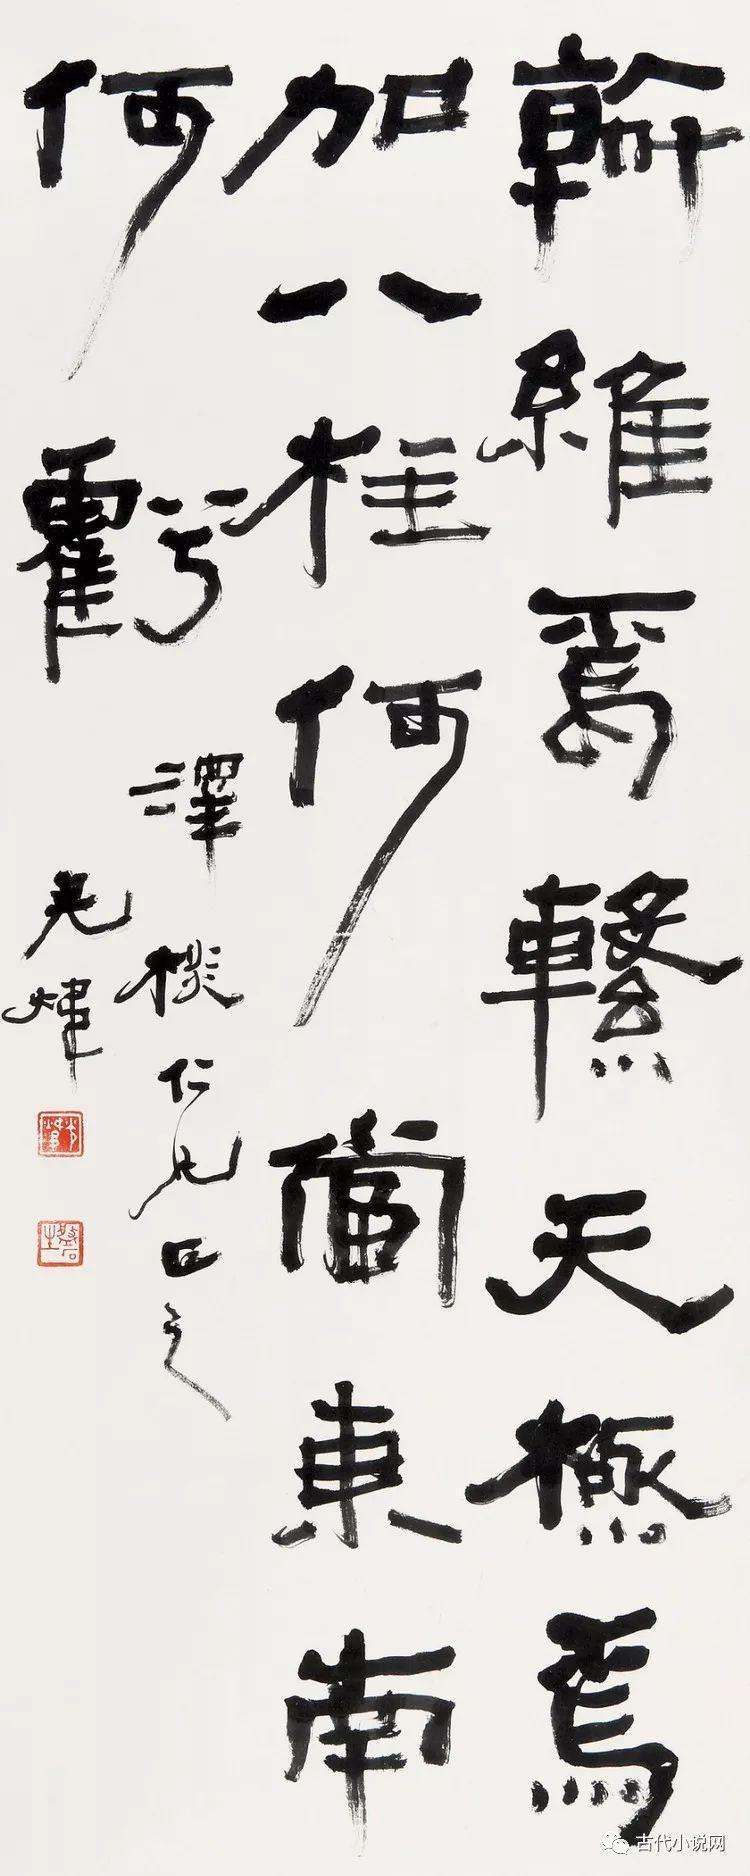 斡維焉繫天極焉
加八柱何當東南
何虧
澤棪仁兄正之
光煒
古代小说网